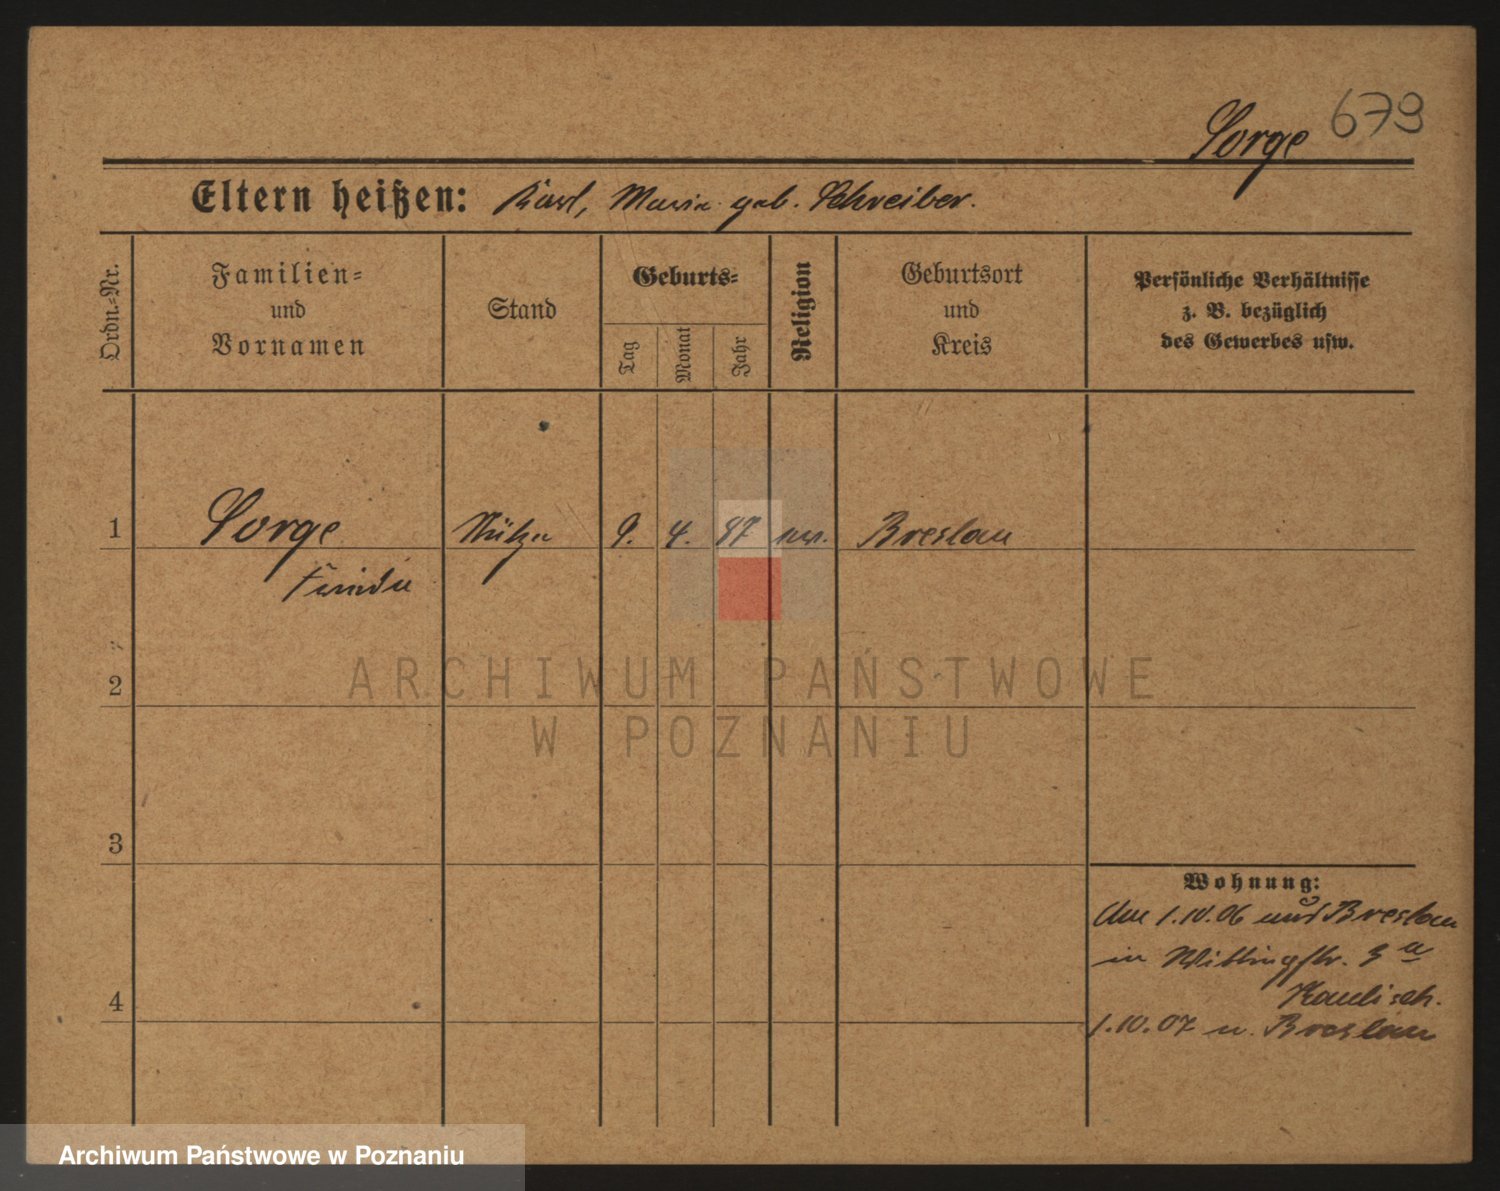 Sorge 679
Eltern heißen: Karl, Maria geb. Schreiber.
Ordn.-Nr.
Familien-
und
Vornamen
Stand
Geburts-
Tag
Monat
Jahr
Religion
Geburtsort
und
Kreis
Persönliche Verhältnisse
z. B. bezüglich
des Gewerbes usw.
1 Sorge 9. 4. 87 Breslau
Frieda
2
3
4
Wohnung:
Am 1.10.06 Breslau
in 3 a
1.10.07 n. Breslau
ARCHIWUM PAŃSTWOWE
W POZNANIU
Archiwum Państwowe w Poznaniu